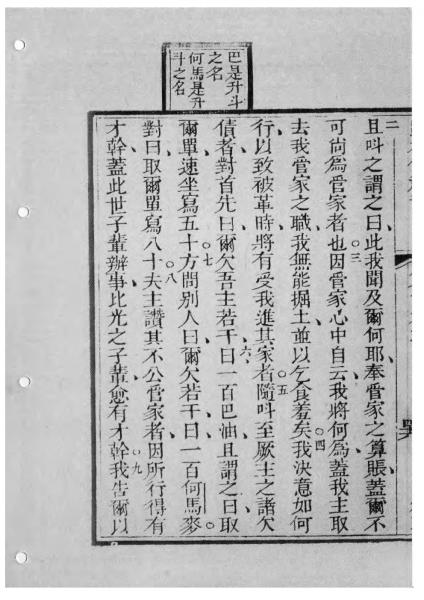 巴是升斗
之名
何馬是升
斗之名
二且叫之謂之曰此我聞及爾何耶奉管家之算賬蓋爾不
可尚為管家者也○三因管家心中自云我將何為蓋我主取
去我管家之職我無能掘土並以乞食羞矣○四我決意如何
行以致被革時將有受我進其家者○五隨叫至厥主之諸欠
債者對首先曰爾欠吾主若干○六曰一百巴油且謂之曰取
爾單速坐寫五十○七方問別人曰爾欠若干曰一百何馬麥
對曰取爾單寫八十○八夫主讚其不公管家者因所行得有
才幹蓋此世子輩辦事比光之子輩愈有才幹○九我告爾以